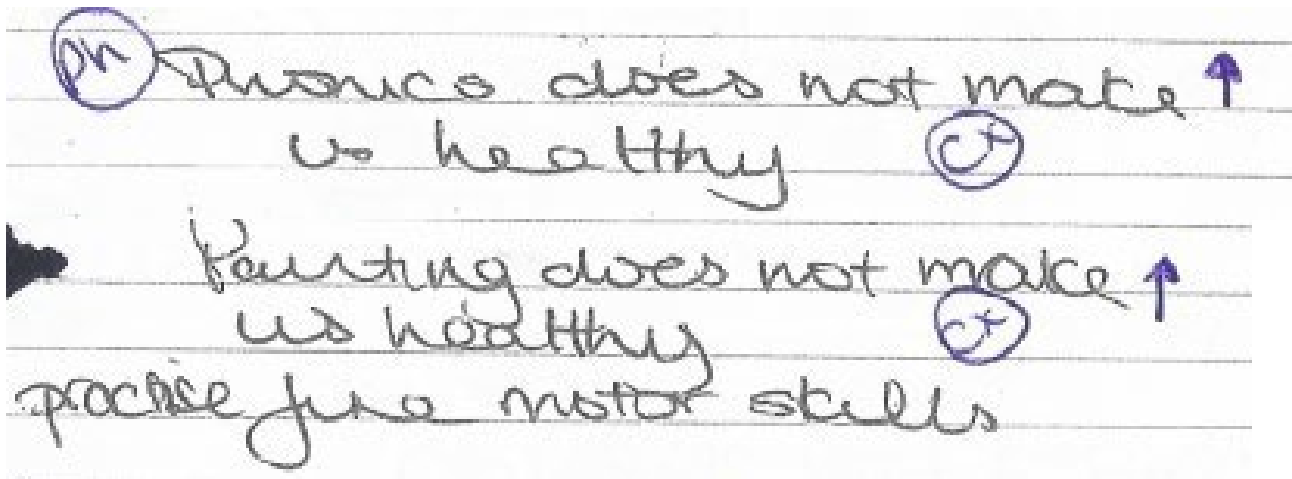 ph Phonics does not make ↑
us healthy ct
Painting does not make ↑
us healthy ct
practise fine motor skills